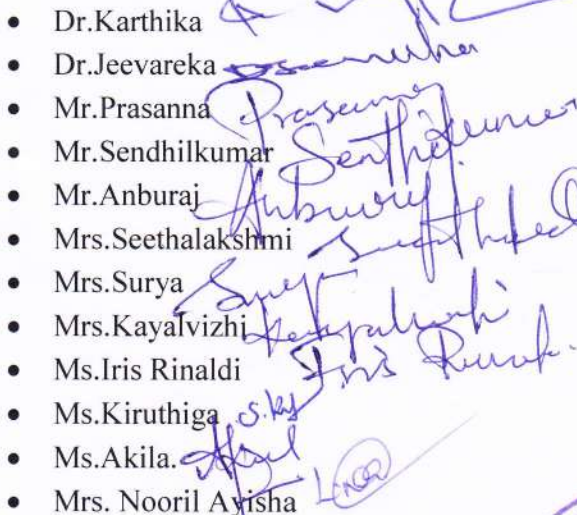 • Dr.Karthika
• Dr.Jeevareka
• Mr.Prasanna Prasanna
• Mr.Sendhilkumar Senthilkumar
• Mr.Anburaj Anburaj
• Mrs.Seethalakshmi
• Mrs.Surya Surya
• Mrs.Kayalvizhi
• Ms.Iris Rinaldi Iris
• Ms.Kiruthiga
• Ms.Akila.
• Mrs. Nooril Ayisha